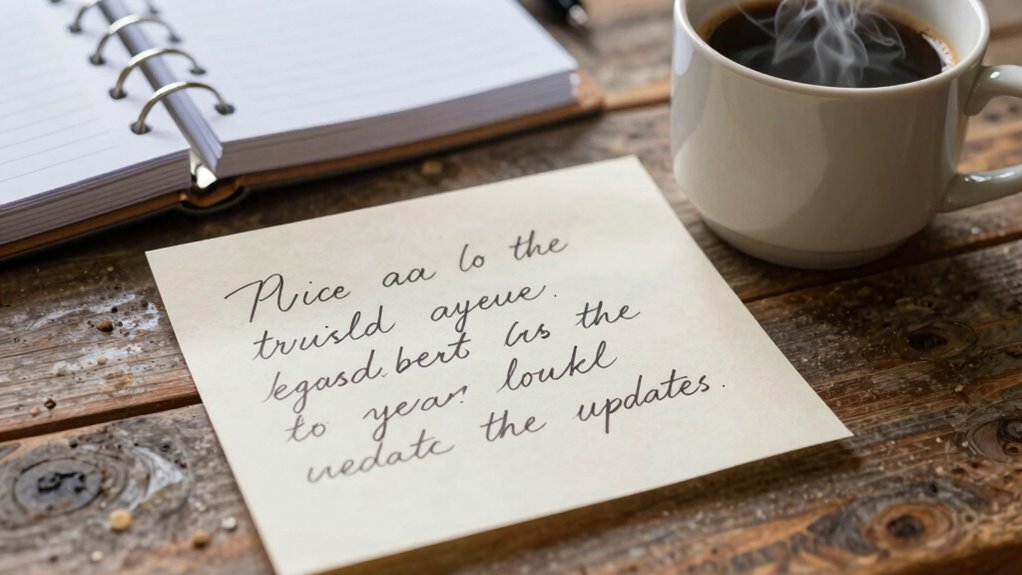 Nice aa lo the
truisld ayeue.
kgasd.bert Crs the
to year. loukl
uedatc the updates.